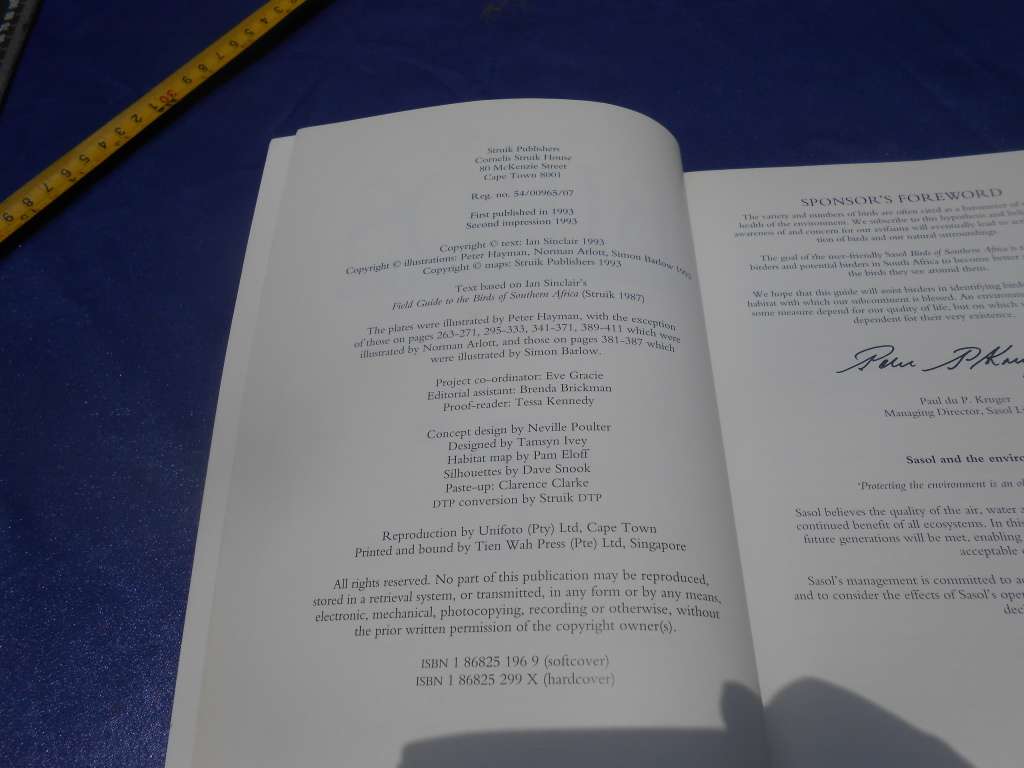 Struik Publishers
Cornelis Struik House
80 McKenzie Street
Cape Town 8001
Reg. no. 54/00965/07
First published in 1993
Second impression 1993
Copyright © text: Ian Sinclair 1993
Copyright © illustrations: Peter Hayman, Norman Arlott, Simon Barlow 1993
Copyright © maps: Struik Publishers 1993
Text based on Ian Sinclair's
Field Guide to the Birds of Southern Africa (Struik 1987)
The plates were illustrated by Peter Hayman, with the exception
of those on pages 263-271, 295-333, 341-371, 389-411 which were
illustrated by Norman Arlott, and those on pages 381-387 which
were illustrated by Simon Barlow.
Project co-ordinator: Eve Gracie
Editorial assistant: Brenda Brickman
Proof-reader: Tessa Kennedy
Concept design by Neville Poulter
Designed by Tamsyn Ivey
Habitat map by Pam Eloff
Silhouettes by Dave Snook
Paste-up: Clarence Clarke
DTP conversion by Struik DTP
Reproduction by Unifoto (Pty) Ltd, Cape Town
Printed and bound by Tien Wah Press (Pte) Ltd, Singapore
All rights reserved. No part of this publication may be reproduced,
stored in a retrieval system, or transmitted, in any form or by any means,
electronic, mechanical, photocopying, recording or otherwise, without
the prior written permission of the copyright owner(s).
ISBN 1 86825 196 9 (softcover)
ISBN 1 86825 299 X (hardcover)
SPONSOR'S FOREWORD
The variety and numbers of birds are often cited as a barometer of
health of the environment. We subscribe to this hypothesis and
awareness of and concern for our avifauna will eventually lead to
tion of birds and our natural surroundings.
The goal of the user-friendly Sasol Birds of Southern Africa is
birders and potential birders in South Africa to become better
the birds they see around them.
We hope that this guide will assist birders in identifying
habitat with which our subcontinent is blessed. An
some measure depend for our quality of life, but on which
dependent for their very existence.
Paul du P. Kruger
Managing Director, Sasol
Sasol and the
'Protecting the environment is an
Sasol believes the quality of the air, water
continued benefit of all ecosystems. In this
future generations will be met, enabling
acceptable
Sasol's management is committed to
and to consider the effects of Sasol's